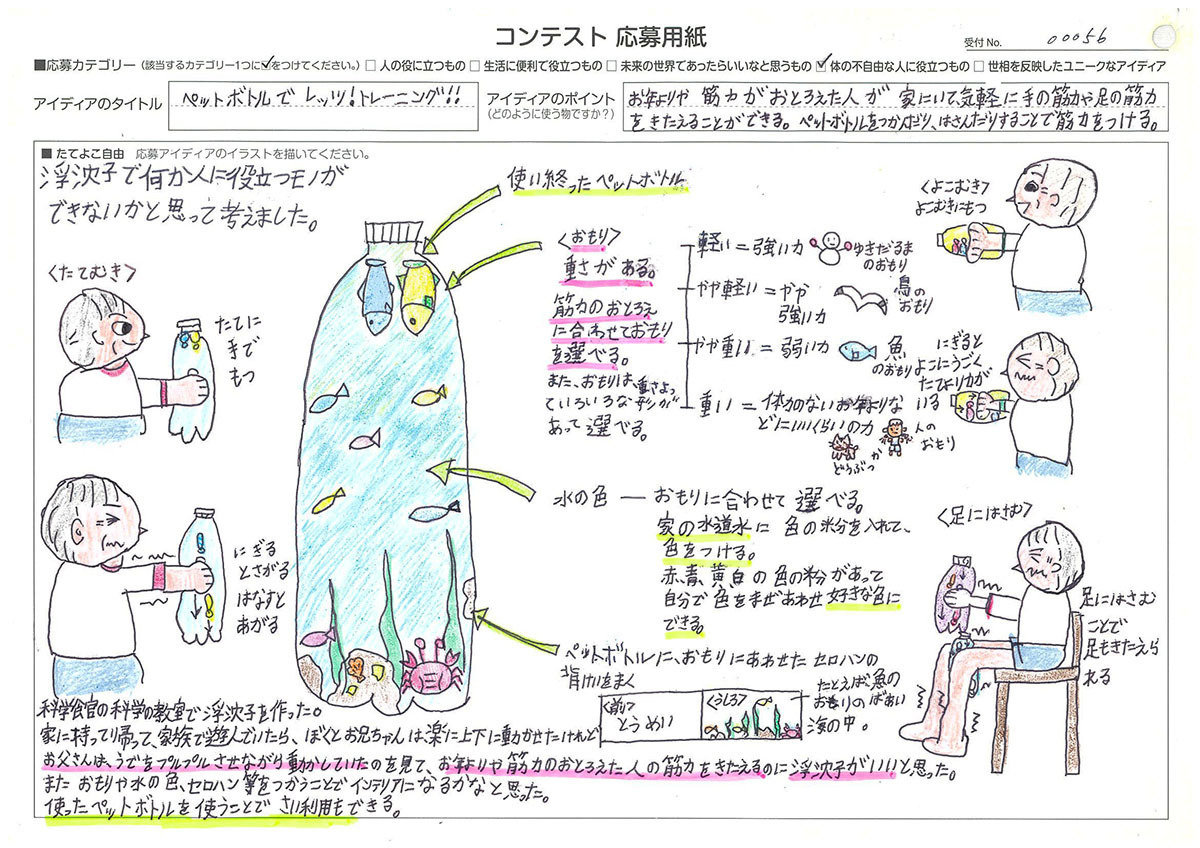 コンテスト 応募用紙
受付 No. 00056
■応募カテゴリー（該当するカテゴリー1つに☑をつけてください。）□人の役に立つもの □生活に便利で役立つもの □未来の世界であったらいいなと思うもの ☑体の不自由な人に役立つもの □世相を反映したユニークなアイディア
アイディアのタイトル
ペットボトルで レッツ！トレーニング!!
アイディアのポイント
（どのように使う物ですか？）
お年よりや 筋力がおとろえた人が 家にいて、気軽に手の筋力や足の筋力
をきたえることができる。ペットボトルをつかんだり、はさんだりすることで筋力をつける。
■ たてよこ自由 応募アイディアのイラストを描いてください。
浮沈子で何か人に役立つモノが
できないかと思って考えました。
使い終ったペットボトル
〈たてむき〉
たてに
手で
もつ
にぎる
とさがる
はなすと
あがる
〈おもり〉
重さがある。
筋力のおとろえ
に合わせておもり
を選べる。
また、おもりは、重さよっ
ていろいろな形が
あって選べる。
軽い＝強い力
ゆきだるま
のおもり
やや軽い＝やや
強い力
鳥の
おもり
やや重い＝弱い力
魚
のおもり
重い＝体力のないお年よりな
どにいいくらいの力
どうぶつ
か
人の
おもり
〈よこむき〉
よこむきにもつ
にぎると
よこにうごく
たてより力が
いる
水の色 ー おもりに合わせて 選べる。
家の水道水に 色の粉を入れて、
色をつける。
赤、青、黄、白の色の粉があって
自分で色をまぜあわせ好きな色に
できる。
〈足にはさむ〉
足にはさむ
ことで
足もきたえら
れる
ペットボトルに、おもりにあわせたセロハンの
背けいをまく
〈前〉
とうめい
〈うしろ〉
たとえば魚の
おもりのばあい
海の中。
科学館の科学の教室で浮沈子を作った。
家に持って帰って、家族で遊んでいたら、ぼくとお兄ちゃんは楽に上下に動かせたけれど
お父さんは、うでをプルプルさせながら動かしていたのを見て、お年よりや筋力のおとろえた人の筋力をきたえるのに浮沈子がいいと思った。
また おもりや水の色、セロハン等をつかうことでインテリアになるかなと思った。
使ったペットボトルを使うことで さい利用もできる。